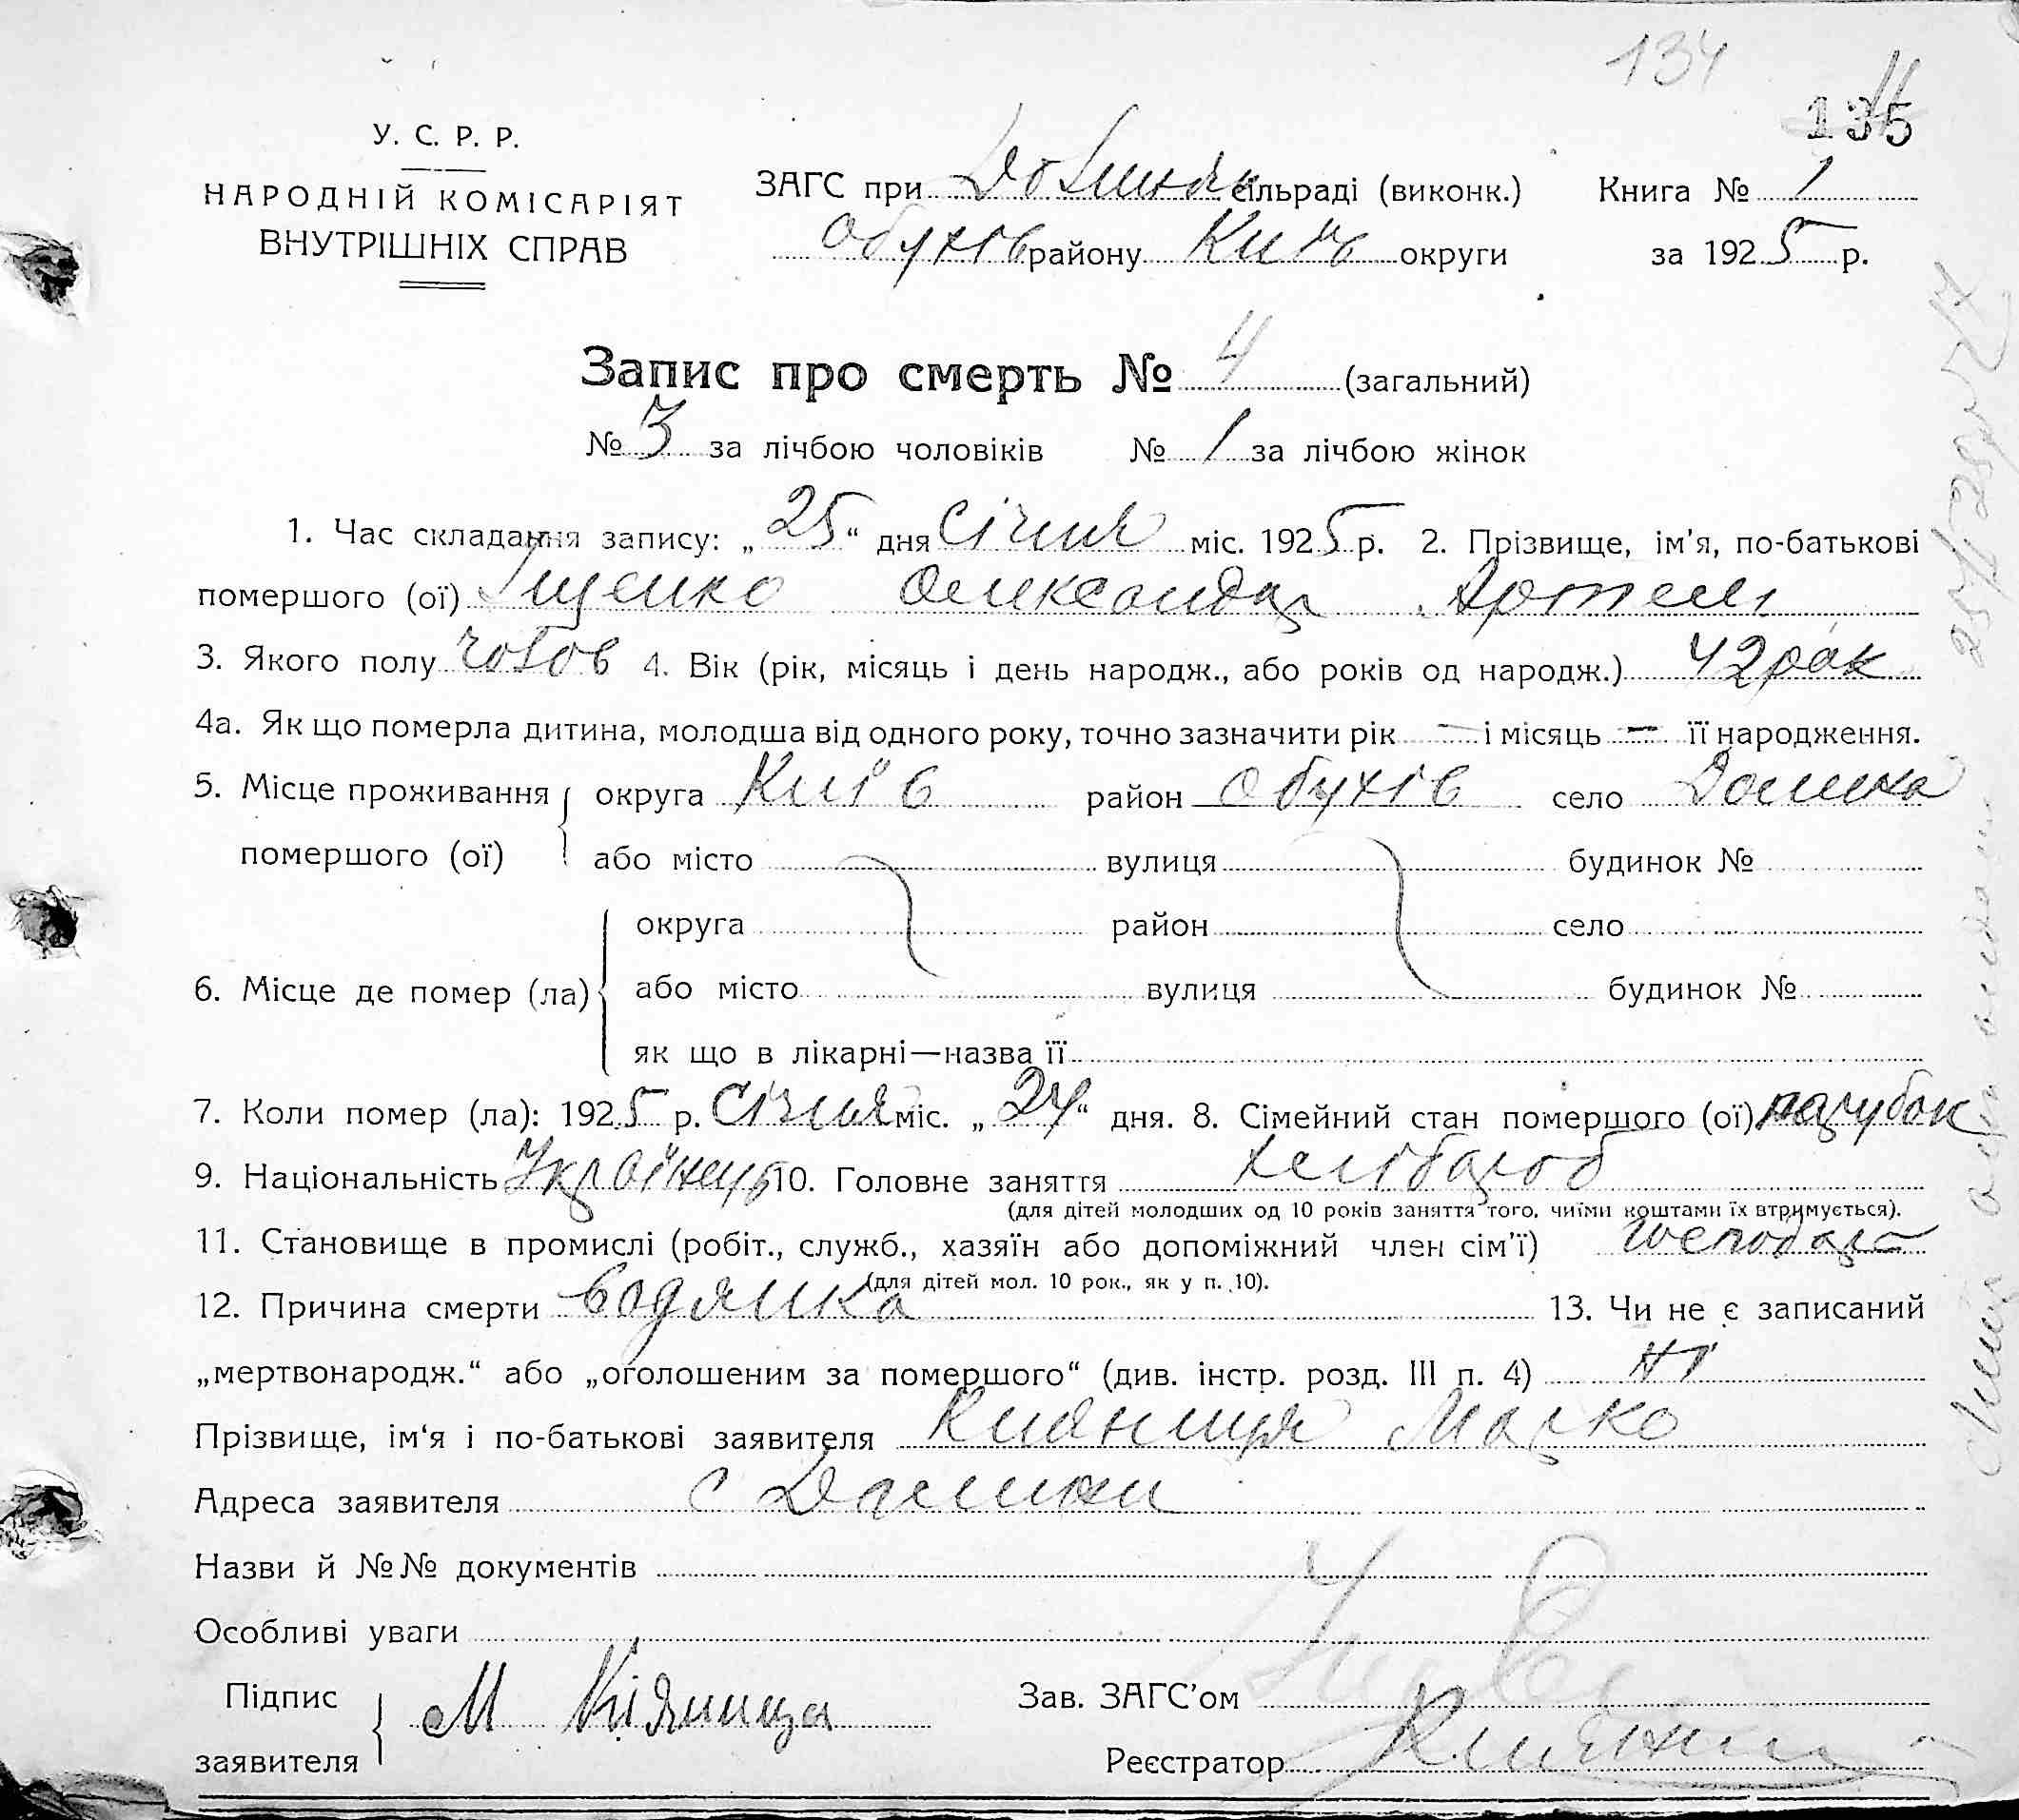 134
135
У. С. Р. Р.
НАРОДНІЙ КОМІСАРІЯТ
ВНУТРІШНІХ СПРАВ
ЗАГС при сільраді (виконк.) Книга № 1
Обухів району Київ округи за 1925 р.
Запис про смерть № 4 (загальний)
№ 3 за лічбою чоловіків № 1 за лічбою жінок
1. Час складання запису: „25“ дня Січня міс. 1925 р. 2. Прізвище, ім'я, по-батькові
помершого (ої) Іщенко Олександр Артем
3. Якого полу чолов 4. Вік (рік, місяць і день народж., або років од народж.) 42 рок
4а. Як що померла дитина, молодша від одного року, точно зазначити рік — і місяць — її народження.
5. Місце проживання округа Київ район Обухів село Долина
помершого (ої) або місто вулиця будинок №
округа район село
6. Місце де помер (ла) або місто вулиця будинок №
як що в лікарні—назва її
7. Коли помер (ла): 1925 р. Січня міс. „24“ дня. 8. Сімейний стан помершого (ої) парубок
9. Національність Українець 10. Головне заняття хлібороб
(для дітей молодших од 10 років заняття того, чиїми коштами їх втримується).
11. Становище в промислі (робіт., служб., хазяїн або допоміжний член сім'ї) господар
(для дітей мол. 10 рок., як у п. 10).
12. Причина смерти водянка 13. Чи не є записаний
„мертвонародж.“ або „оголошеним за помершого“ (див. інстр. розд. III п. 4) ні
Прізвище, ім'я і по-батькові заявителя Кияниця Марко
Адреса заявителя с Долини
Назви й №№ документів
Особливі уваги
Підпис М Кіяниця Зав. ЗАГС'ом
заявителя Реєстратор